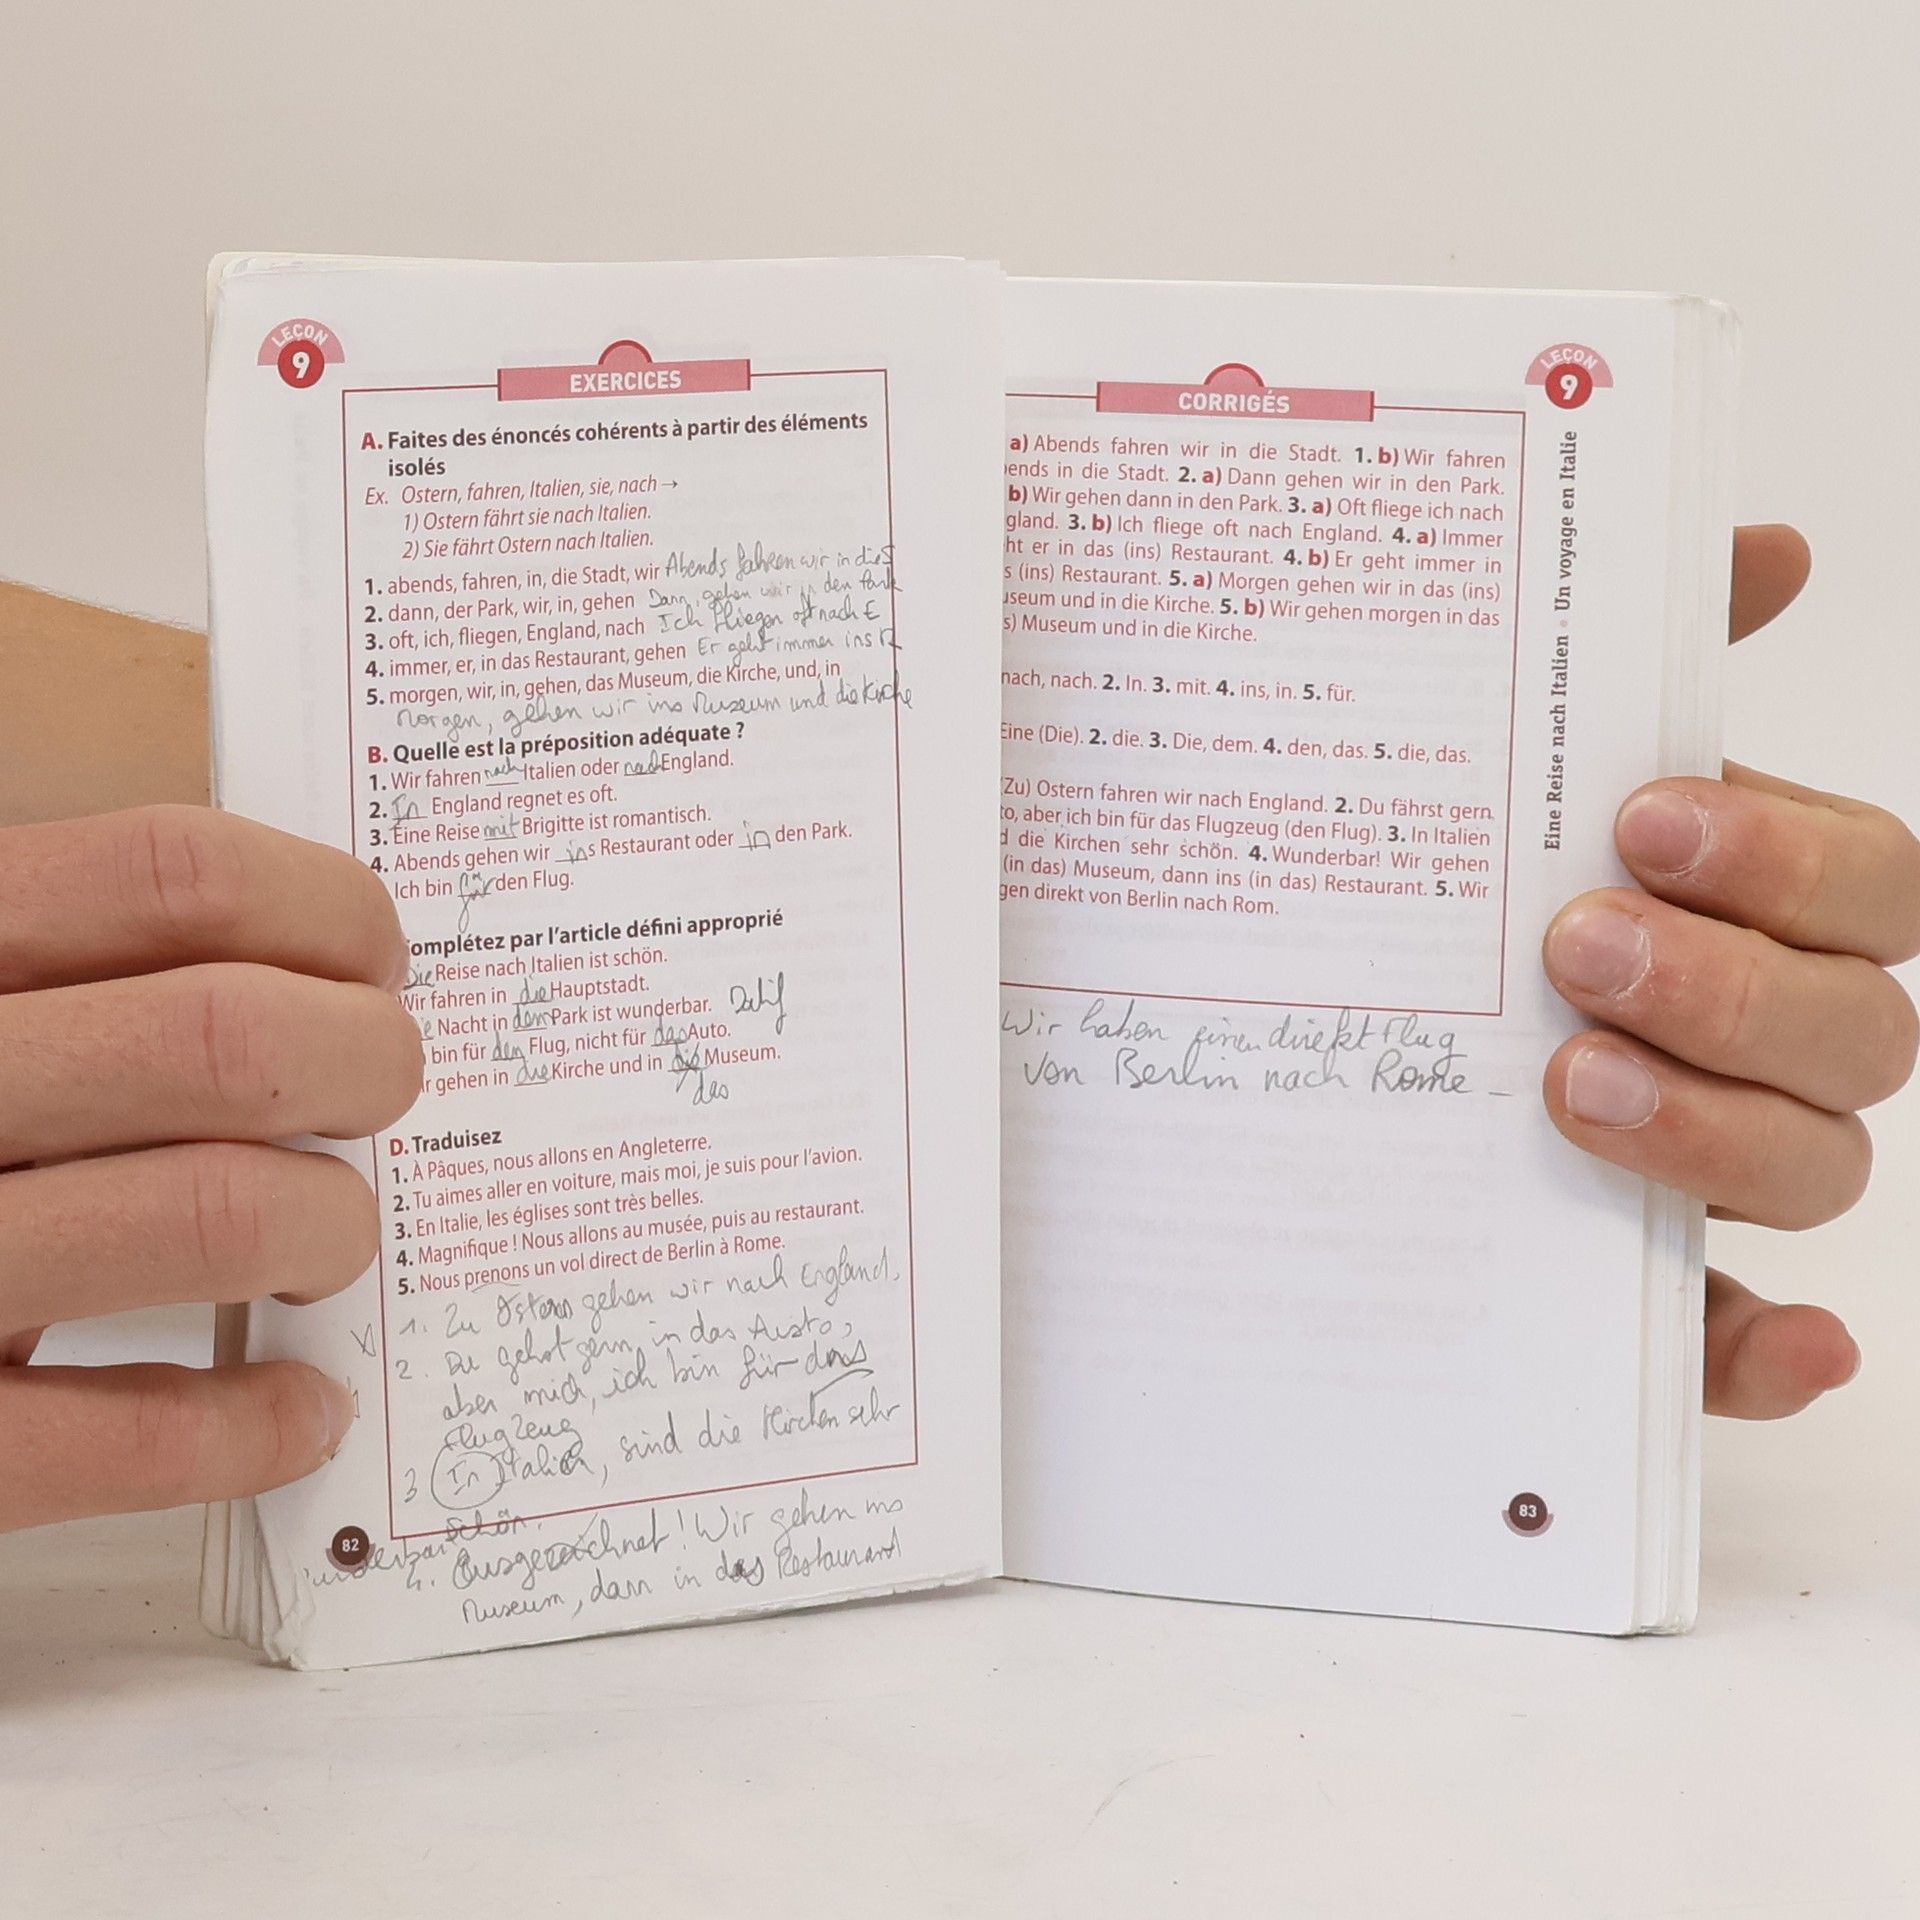 LEÇON
9
EXERCICES
A. Faites des énoncés cohérents à partir des éléments
isolés
Ex. Ostern, fahren, Italien, sie, nach →
1) Ostern fährt sie nach Italien.
2) Sie fährt Ostern nach Italien.
1. abends, fahren, in, die Stadt, wir Abends fahren wir in die S
2. dann, der Park, wir, in, gehen Dann, gehen wir in den Park
3. oft, ich, fliegen, England, nach Ich fliegen oft nach E
4. immer, er, in das Restaurant, gehen Er geht immer ins R
5. morgen, wir, in, gehen, das Museum, die Kirche, und, in
Morgen, gehen wir ins Museum und die Kirche
B. Quelle est la préposition adéquate ?
1. Wir fahren nach Italien oder nach England.
2. In England regnet es oft.
3. Eine Reise mit Brigitte ist romantisch.
4. Abends gehen wir ins Restaurant oder in den Park.
Ich bin für den Flug.
omplétez par l'article défini approprié
Die Reise nach Italien ist schön.
Wir fahren in die Hauptstadt.
e Nacht in dem Park ist wunderbar. Datif
bin für den Flug, nicht für das Auto.
ir gehen in die Kirche und in die Museum.
das
D. Traduisez
1. À Pâques, nous allons en Angleterre.
2. Tu aimes aller en voiture, mais moi, je suis pour l'avion.
3. En Italie, les églises sont très belles.
4. Magnifique ! Nous allons au musée, puis au restaurant.
5. Nous prenons un vol direct de Berlin à Rome.
1. Zu Ostern gehen wir nach England,
2. Du gehst gern in das Auto,
aber mich, ich bin für das
Flugzeug
3 In Italien, sind die Kirchen sehr
schön.
4. Ausgezeichnet! Wir gehen ins
Museum, dann in das Restaurant
82
LEÇON
9
CORRIGÉS
a) Abends fahren wir in die Stadt. 1. b) Wir fahren
ends in die Stadt. 2. a) Dann gehen wir in den Park.
b) Wir gehen dann in den Park. 3. a) Oft fliege ich nach
gland. 3. b) Ich fliege oft nach England. 4. a) Immer
ht er in das (ins) Restaurant. 4. b) Er geht immer in
s (ins) Restaurant. 5. a) Morgen gehen wir in das (ins)
useum und in die Kirche. 5. b) Wir gehen morgen in das
s) Museum und in die Kirche.
nach, nach. 2. In. 3. mit. 4. ins, in. 5. für.
Eine (Die). 2. die. 3. Die, dem. 4. den, das. 5. die, das.
(Zu) Ostern fahren wir nach England. 2. Du fährst gern
to, aber ich bin für das Flugzeug (den Flug). 3. In Italien
d die Kirchen sehr schön. 4. Wunderbar! Wir gehen
(in das) Museum, dann ins (in das) Restaurant. 5. Wir
gen direkt von Berlin nach Rom.
Wir haben einen direkt Flug
von Berlin nach Rome
Eine Reise nach Italien • Un voyage en Italie
83